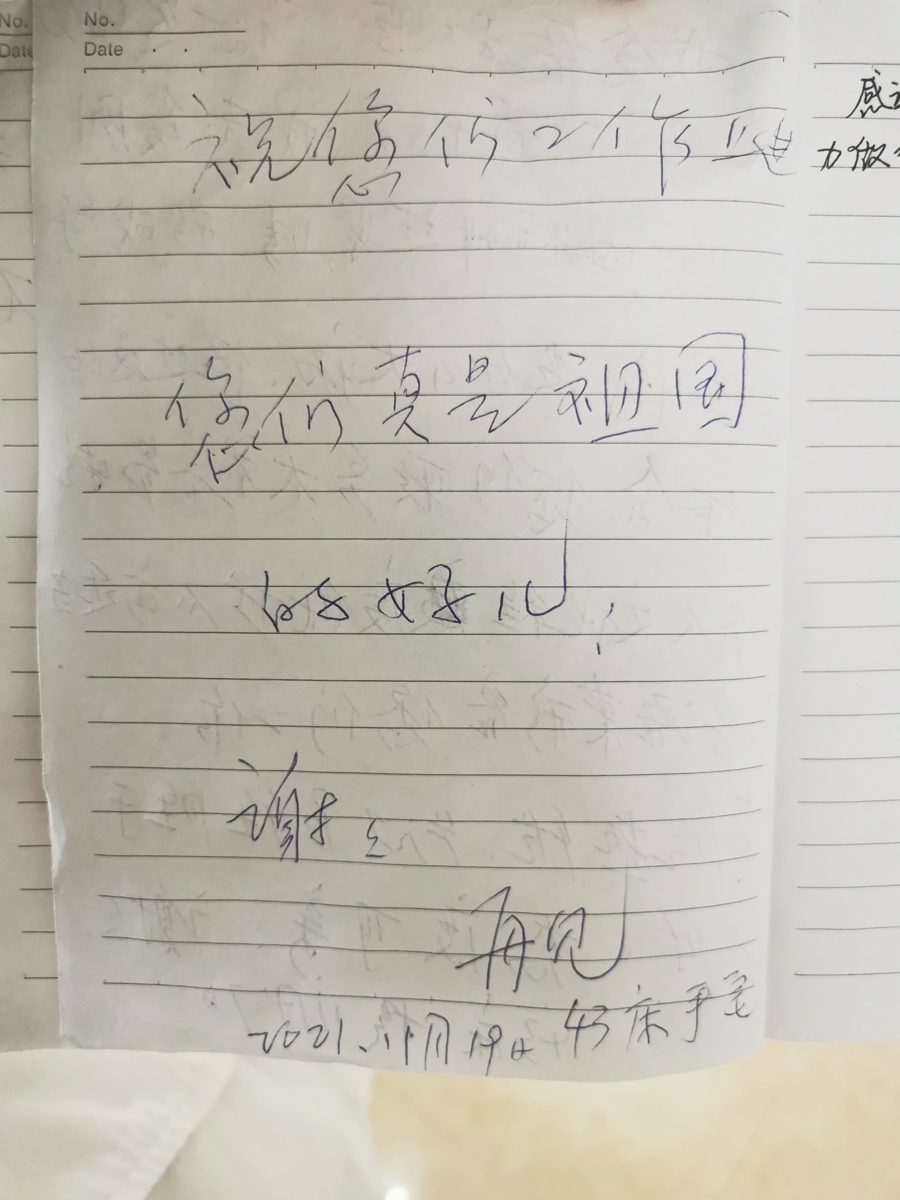 No.
Date
No.
Date
祝您们工作顺
您们真是祖国
的好儿
谢谢
再见
2021.11月19日 43床
感
力做